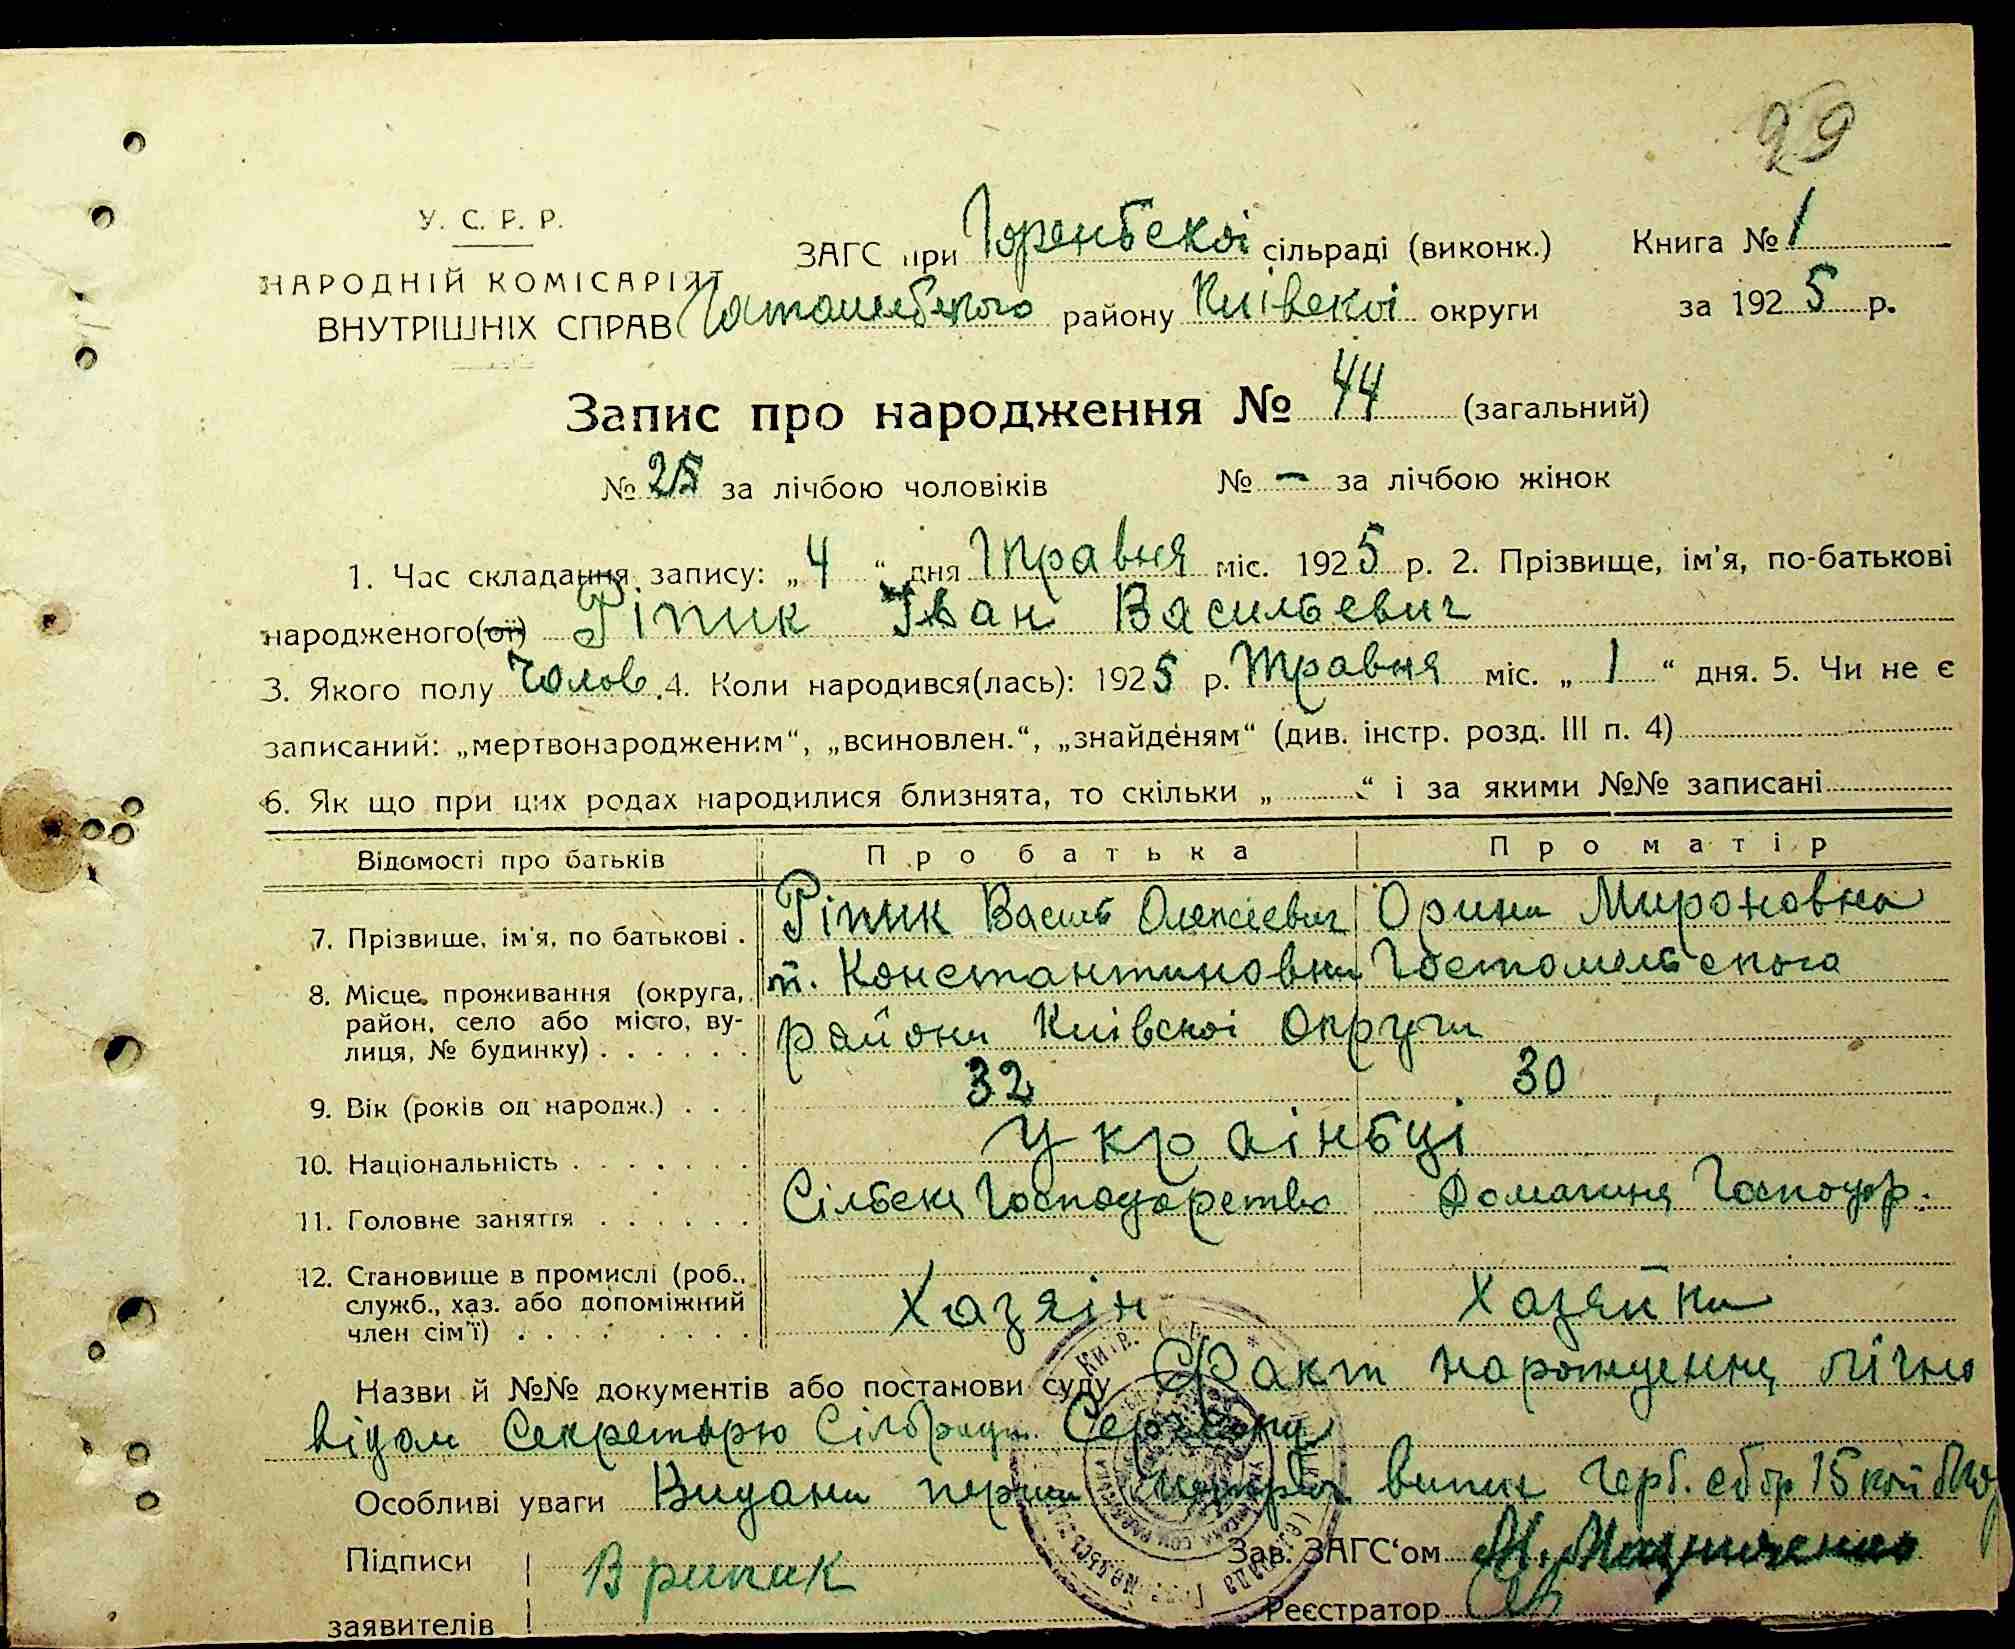 29
У. С. Р. Р.
НАРОДНІЙ КОМІСАРІЯТ
ВНУТРІШНІХ СПРАВ
ЗАГС при Горенської сільраді (виконк.) Книга № 1
Гостомельського району Київскоі округи за 1925 р.
Запис про народження № 44 (загальний)
№ 25 за лічбою чоловіків № — за лічбою жінок
1. Час складання запису: „4“ дня Травня міс. 1925 р. 2. Прізвище, ім'я, по-батькові
народженого(ої) Ріпик Іван Васильевич
3. Якого полу Чолов. 4. Коли народився(лась): 1925 р. Травня міс. „1“ дня. 5. Чи не є
записаний: „мертвонародженим“, „всиновлен.“, „знайденям“ (див. інстр. розд. III п. 4)
6. Як що при цих родах народилися близнята, то скільки „ “ і за якими №№ записані
Відомості про батьків Про батька Про матір
7. Прізвище, ім'я, по батькові . Ріпик Василь Олексієвич Орина Мироновна
8. Місце проживання (округа, район, село або місто, вулиця, № будинку) . . . . . . п. Константиновка Гостомельского
району Київскоі Округи
9. Вік (років од народж.) . . . 32 30
10. Національність . . . . . . . Украіньці
11. Головне заняття . . . . . . Сільске Господарство Домашня Господар.
12. Становище в промислі (роб., служб., хаз. або допоміжний член сім'ї) . . . . . . . . Хазяін Хазяйка
Назви й №№ документів або постанови суду Факт нарождення лічно
відом Секретарю Сільради
Особливі уваги Видана перша випис герб. сбор 15 коп
Підписи заявителів В рипик
Зав. ЗАГС'ом М.
Реєстратор